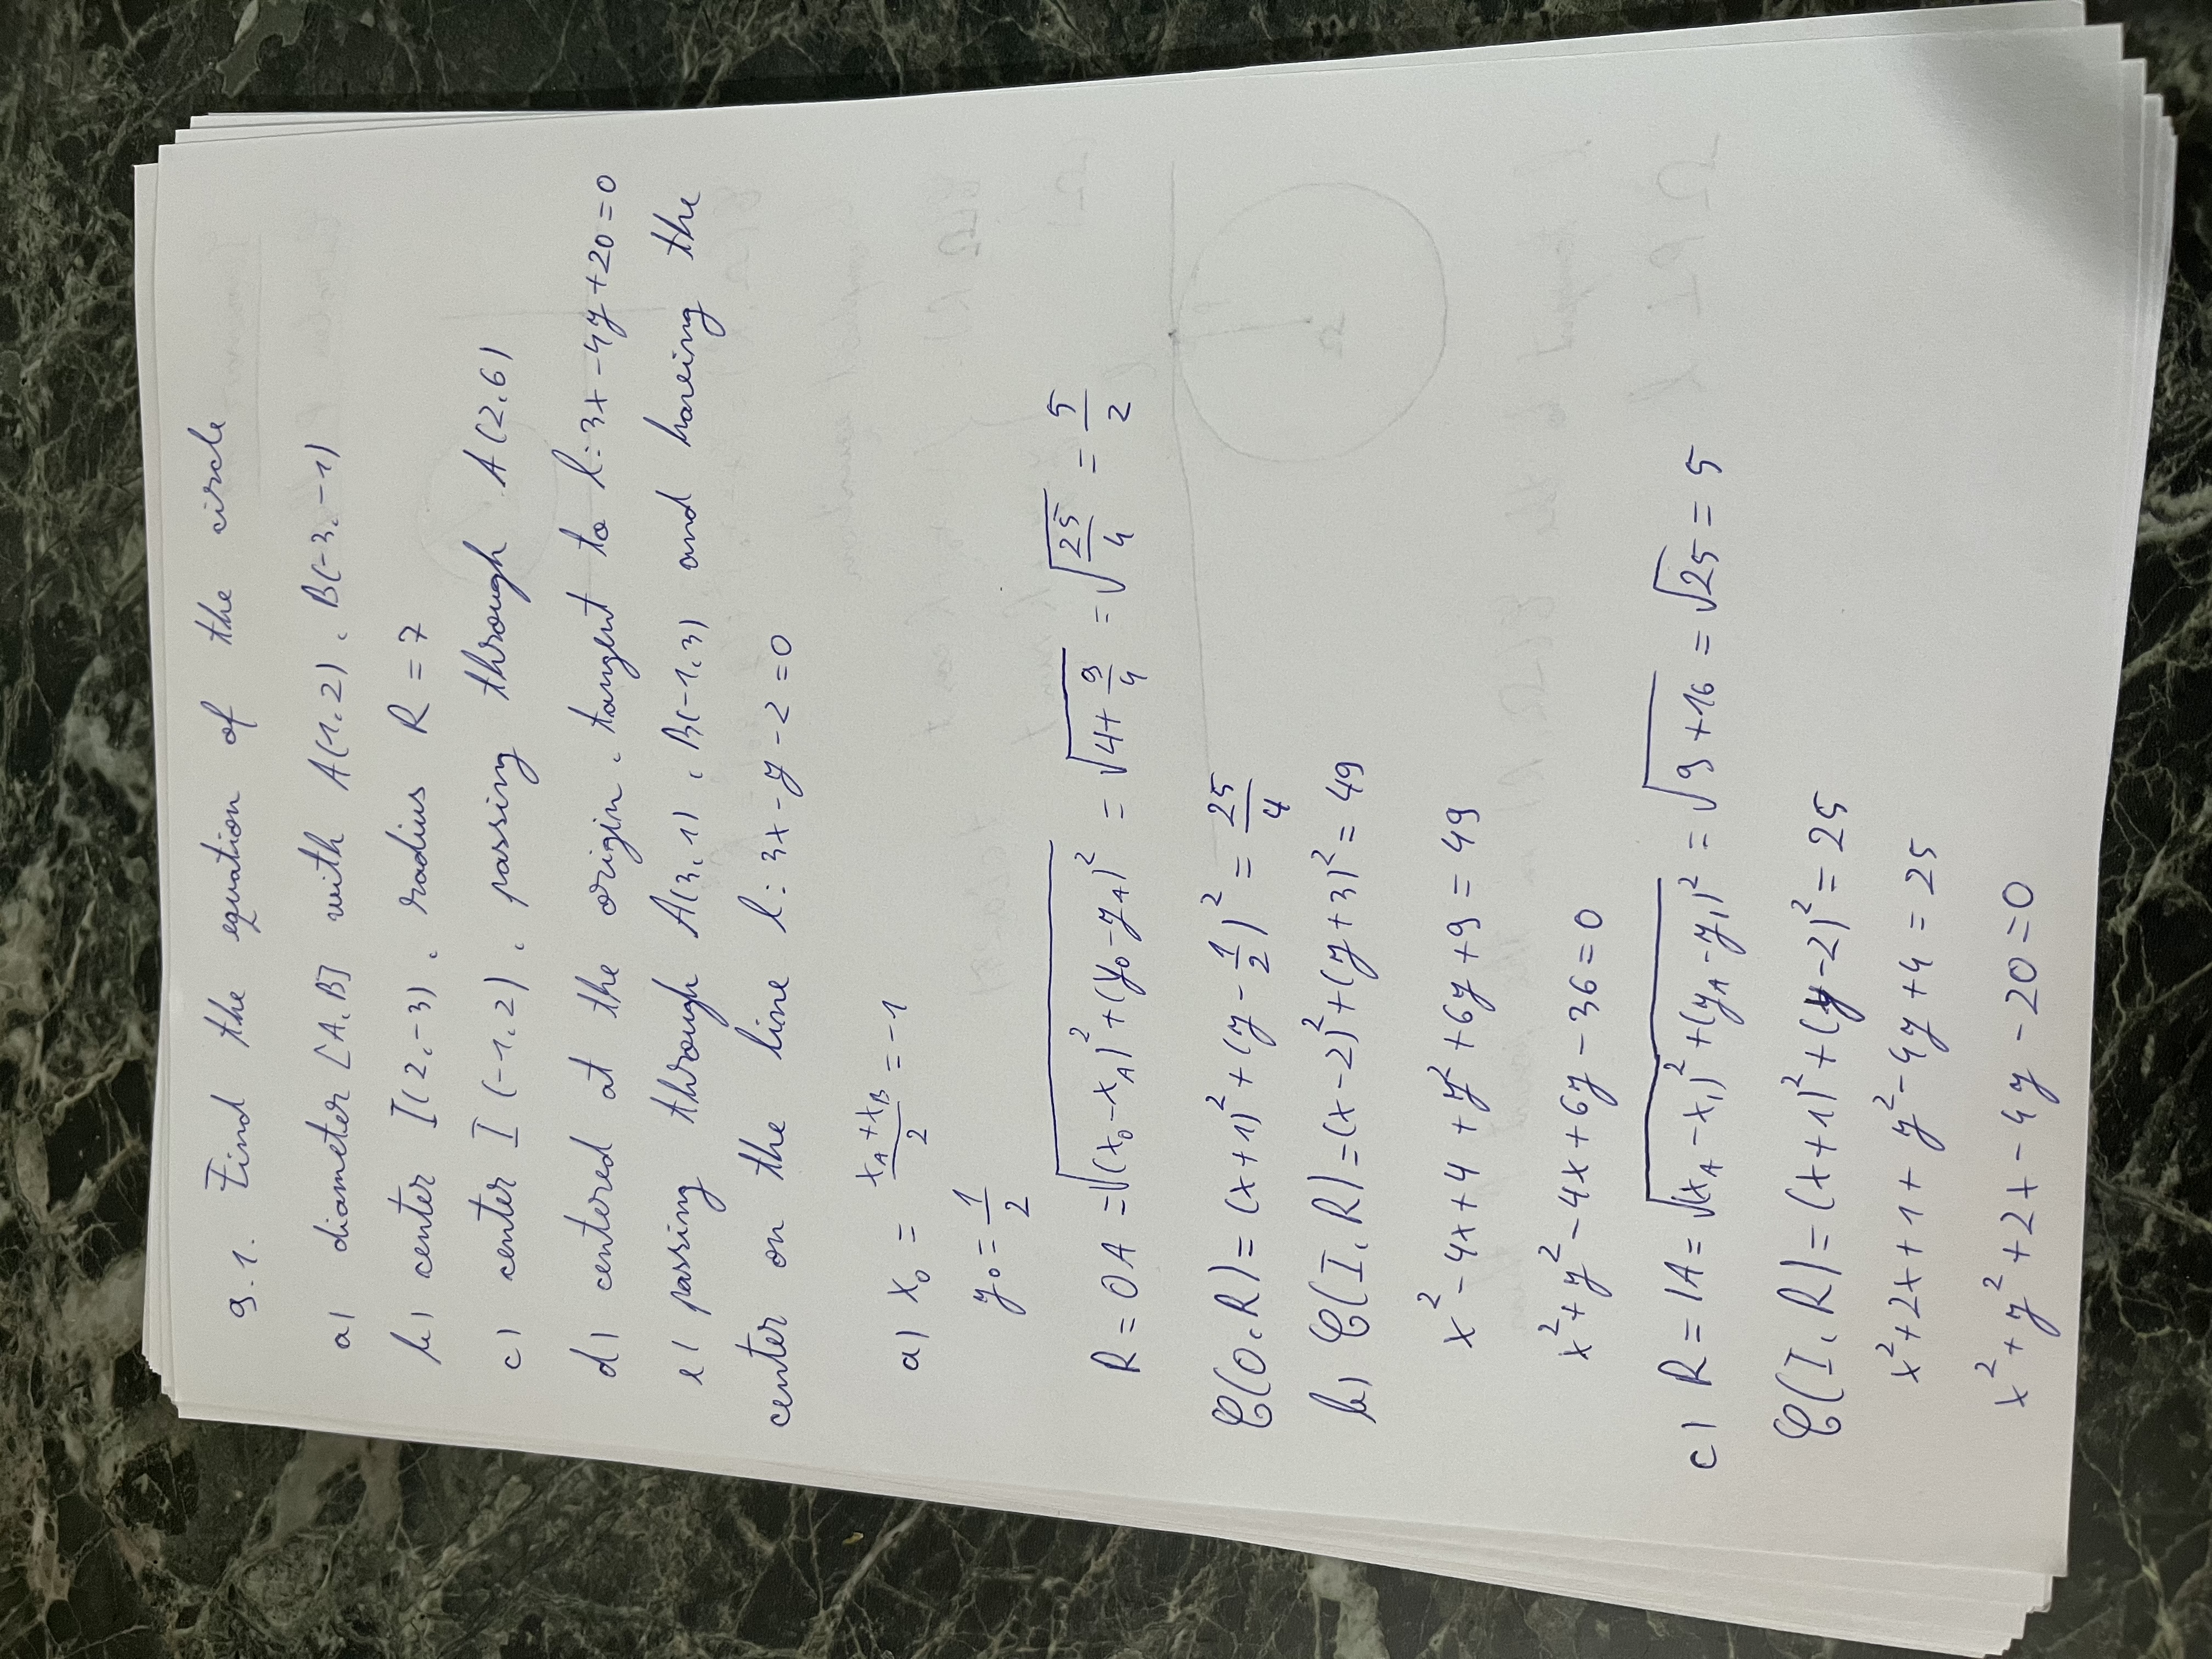 9.1. Find the equation of the circle
a) diameter [A, B] with A(1, 2), B(-3, -1)
b) center I(2, -3), radius R = 7
c) center I(-1, 2), passing through A(2, 6)
d) centered at the origin, tangent to l: 3x - 4y + 20 = 0
e) passing through A(3, 1), B(-1, 3) and having the
center on the line l: 3x - y - 2 = 0
a) x₀ = (x_A + x_B)/2 = -1
y₀ = 1/2
R = OA = √((x₀ - x_A)² + (y₀ - y_A)²) = √(4 + 9/4) = √(25/4) = 5/2
C(O, R) = (x + 1)² + (y - 1/2)² = 25/4
b) C(I, R) = (x - 2)² + (y + 3)² = 49
x² - 4x + 4 + y² + 6y + 9 = 49
x² + y² - 4x + 6y - 36 = 0
c) R = IA = √((x_A - x_I)² + (y_A - y_I)²) = √(9 + 16) = √25 = 5
C(I, R) = (x + 1)² + (y - 2)² = 25
x² + 2x + 1 + y² - 4y + 4 = 25
x² + y² + 2x - 4y - 20 = 0